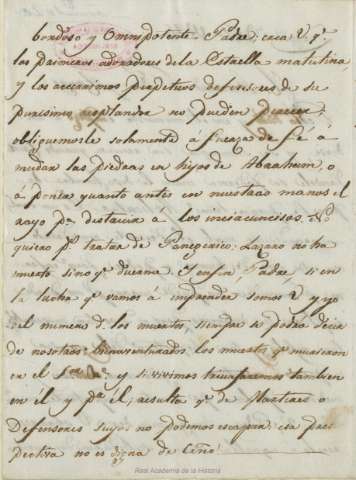 bondoso y Omnipotente Padre: crea V. q.e
los primeros adoradores de la Estrella matutina,
y los acerrimos perpetuos defensores de su
purisimo resplandor no pueden perecer;
obliguemosle solamente á fuerza de fe á
mudar las piedras en hijos de Abraham, o
á poner quanto antes en nuestras manos el
rayo p.a destruir a los incircuncisos. No
quiero p.r tratar de Panegirico: Lazaro no ha
muerto sino q.e duerme. Y en fin, Padre, si en
la lucha q.e vamos á emprender somos V. y yo
del numero d. los muertos, siempre se podrá decir
de nosotros: bienaventurados los muertos q.e murieron
en el Señor y si vivimos triunfaremos tambien
en él y p.a el; resulta q.e de Martires o
Defensores suyos no podemos escapar: esa pers
pectiva no es digna de
Real Academia de la Historia